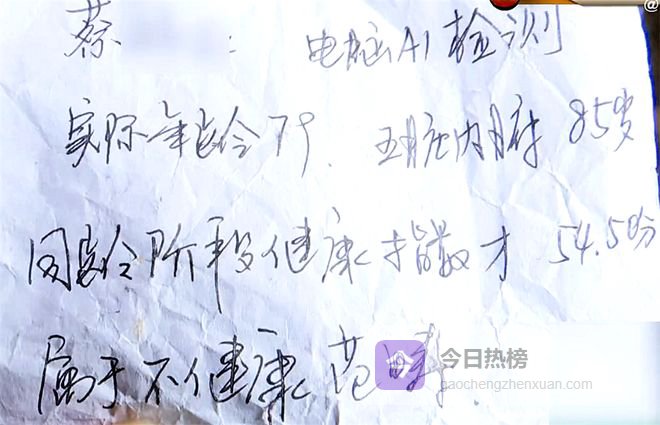 蔡 : 电脑AI检测
实际年龄79. 五脏内脏 85岁
同龄阶段健康指数才 54.5分
属于不健康范畴
今日热榜
gaochengzhenxuan.com
@